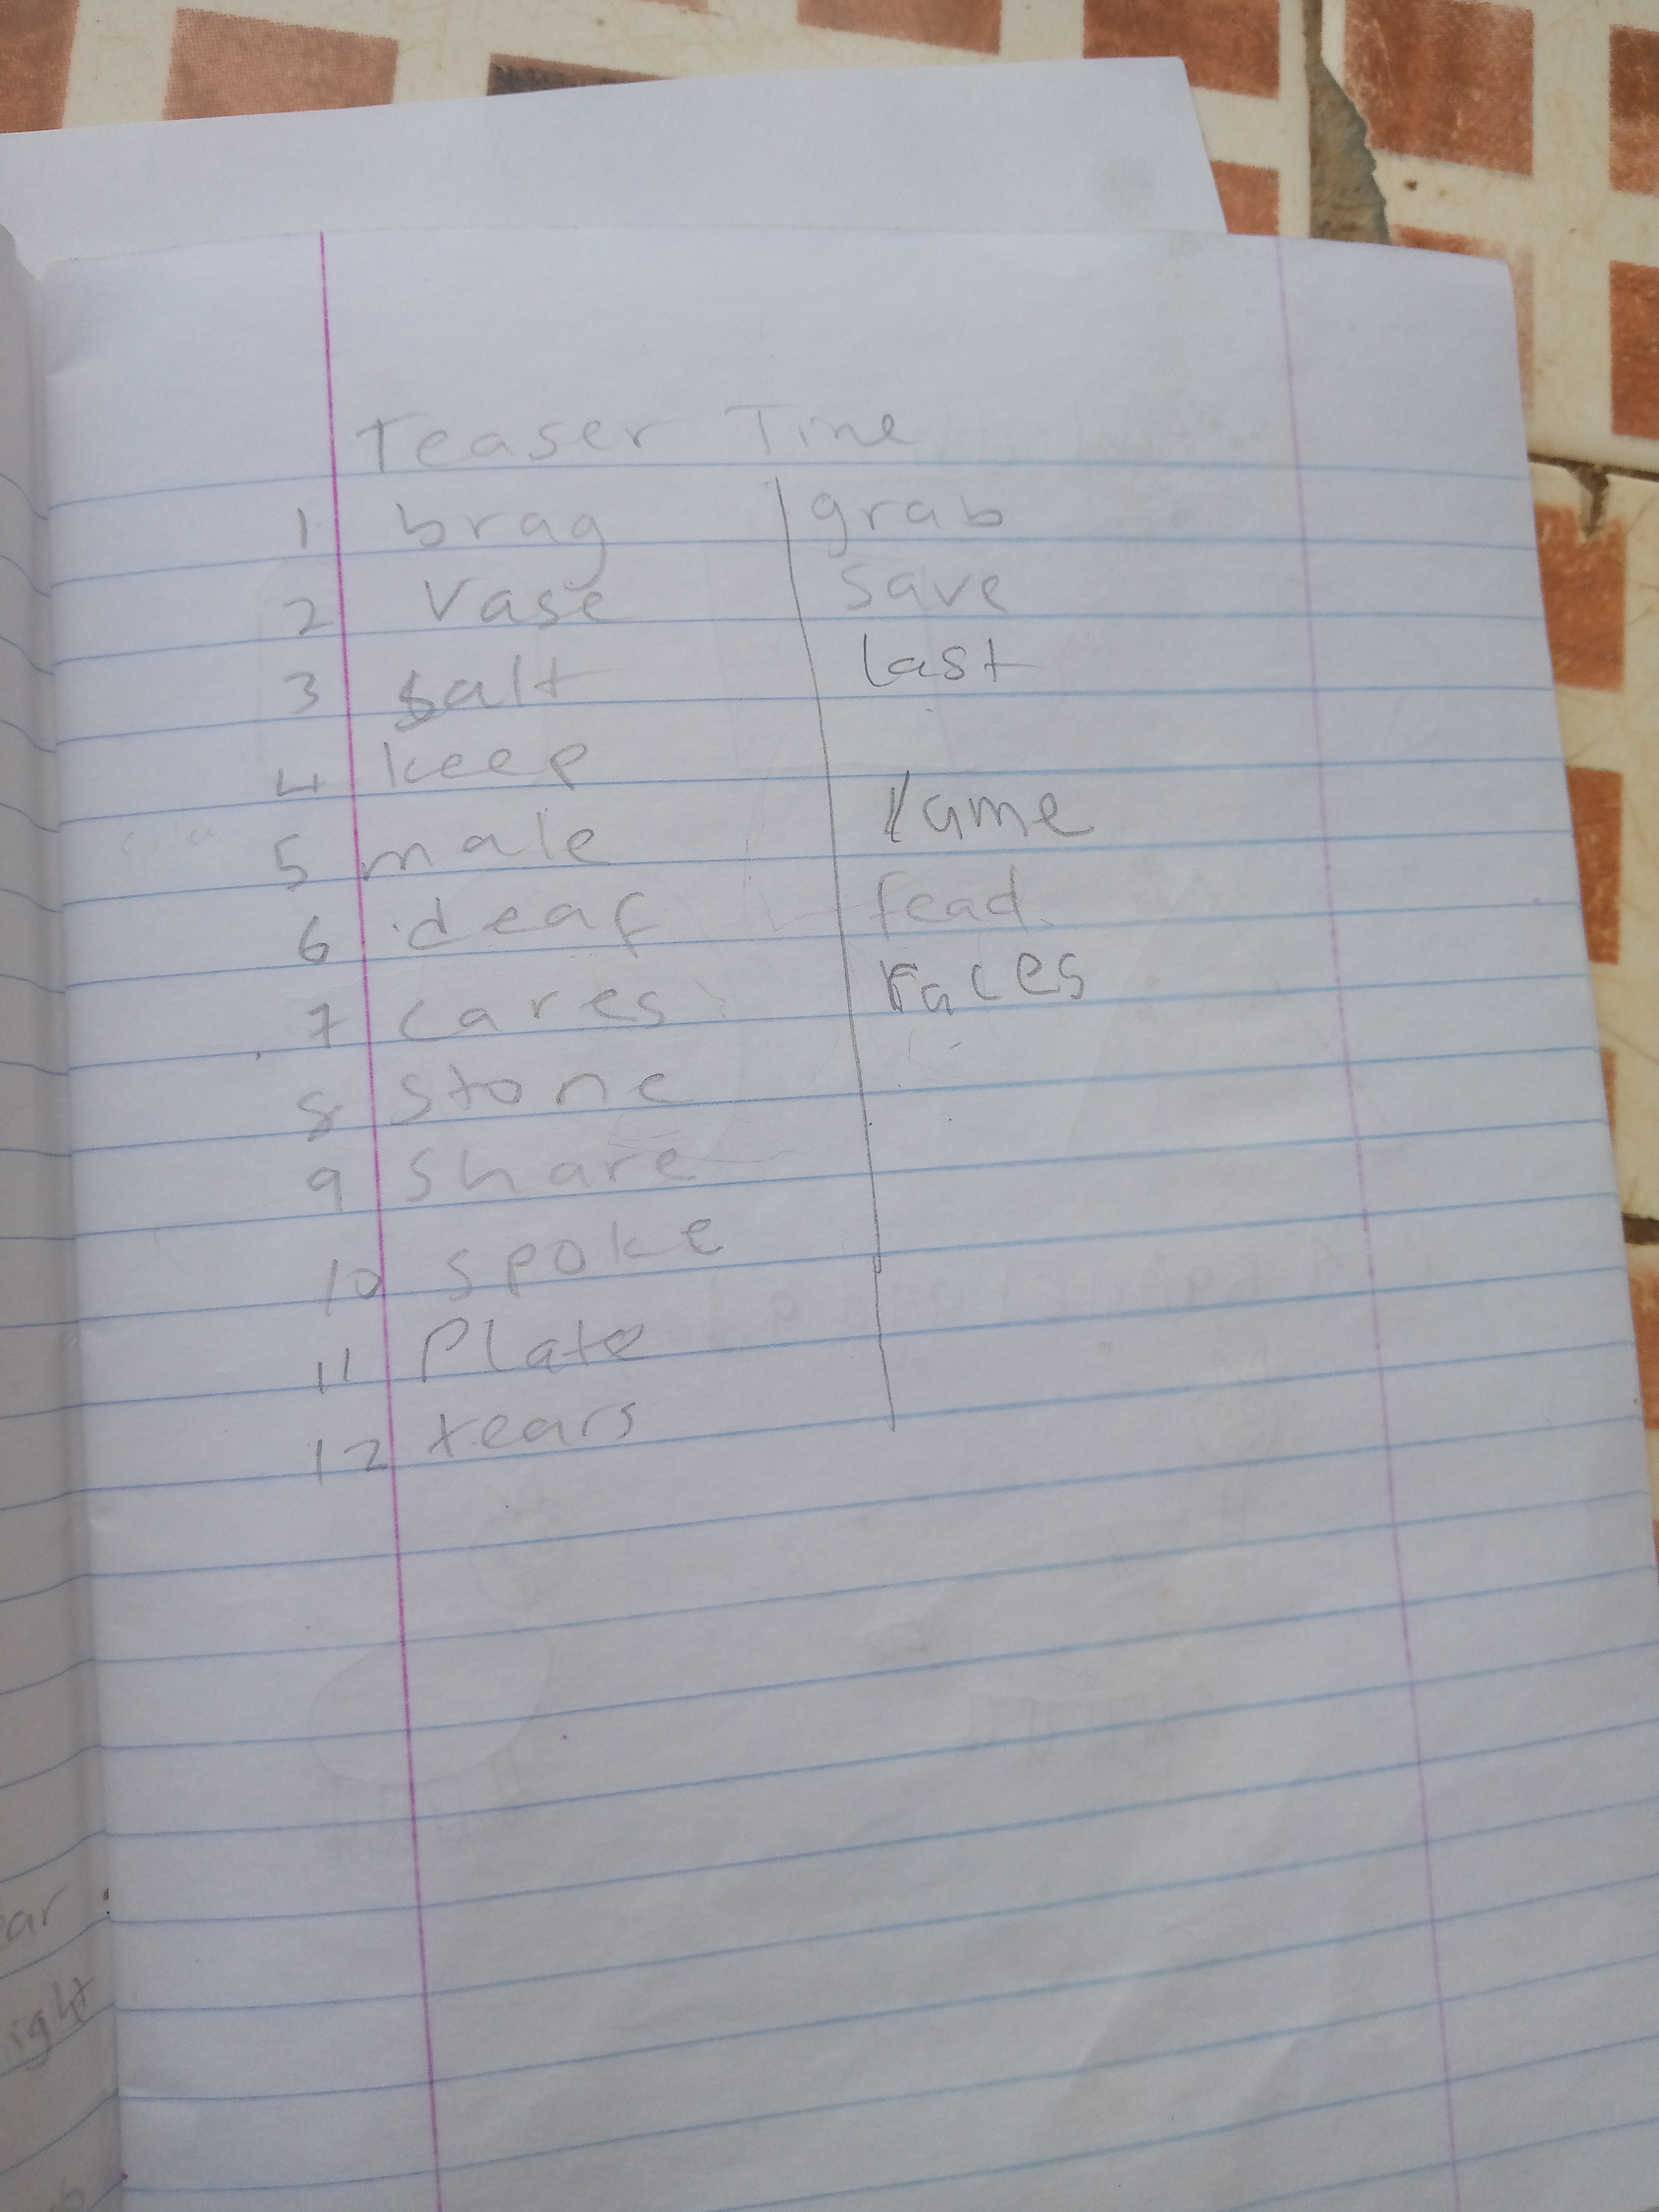 Teaser Time
1 brag grab
2 Vase save
3 salt last
4 keep
5 male lame
6 deaf fead
7 cares races
8 stone
9 share
10 spoke
11 Plate
12 tears
ar
ight